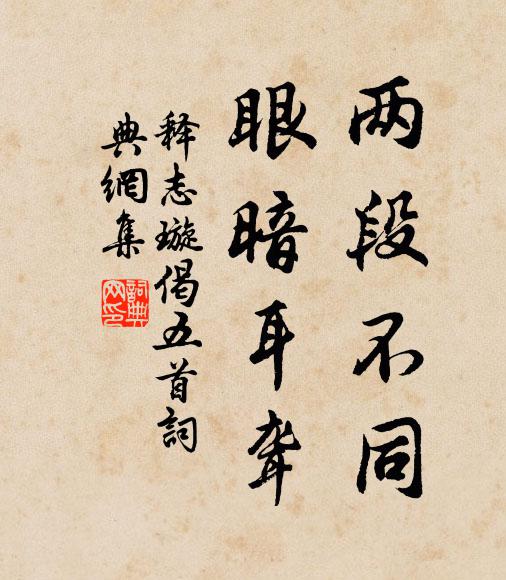 两段不同
眼暗耳聋
释志璇偈五首詞
典網集
詞典
网印